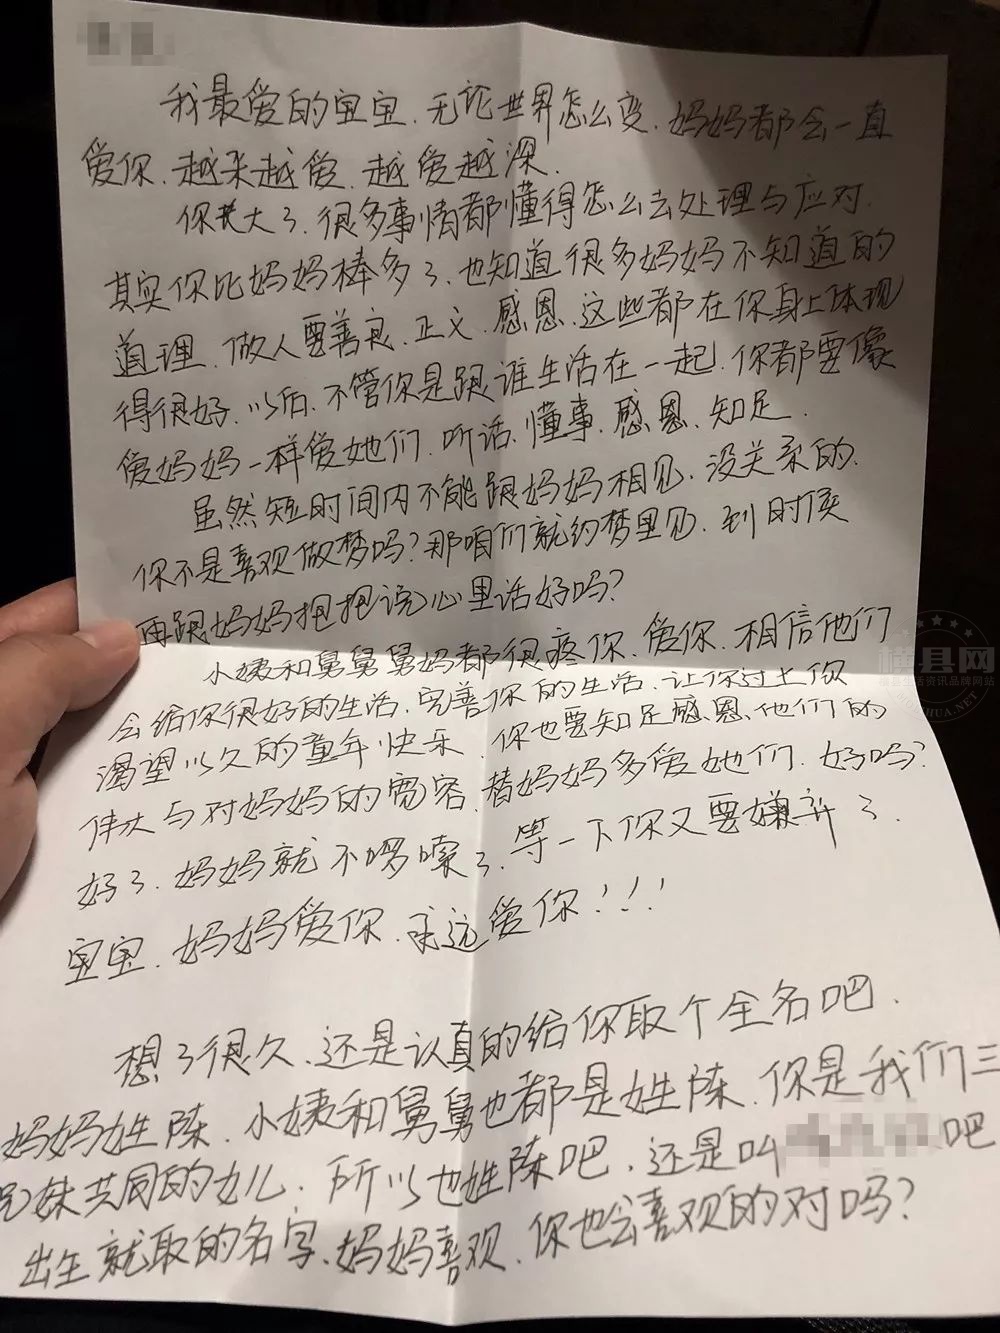 我最爱的宝宝.无论世界怎么变.妈妈都会一直
爱你.越来越爱.越爱越深.
你长大了.很多事情都懂得怎么去处理与应对.
其实你比妈妈棒多了.也知道很多妈妈不知道的
道理.做人要善良.正义.感恩.这些都在你身上体现
得很好.以后.不管你是跟谁生活在一起.你都要像
爱妈妈一样爱她们.听话.懂事.感恩.知足.
虽然短时间内不能跟妈妈相见.没关系的.
你不是喜欢做梦吗?那咱们就约梦里见.到时候
再跟妈妈抱抱说心里话好吗?
小姨和舅舅舅妈都很疼你.爱你.相信他们
会给你很好的生活.完善你的生活.让你过上你
渴望以久的童年快乐.你也要知足感恩.他们的
伟大与对妈妈的宽容.替妈妈多爱她们.好吗?
好了.妈妈就不啰嗦了.等一下你又要嫌弃了.
宝宝.妈妈爱你.永远爱你!!!
想了很久.还是认真的给你取个全名吧.
妈妈姓陈.小姨和舅舅也都是姓陈.你是我们三
兄妹共同的女儿.所以也姓陈吧.还是叫吧
出生就取的名字.妈妈喜欢.你也会喜欢的对吗?
横县网